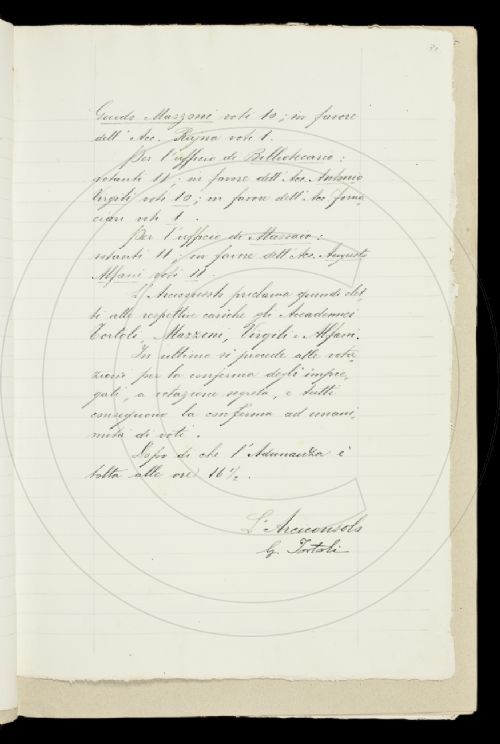 Guido Mazzoni voti 10; in favore
dell'Acc. Rajna voti 1.
Per l'ufficio di Bibliotecario:
votanti 11; in favore dell'Acc. Antonio
Virgili voti 10; in favore dell'Acc. Forna-
ciari voti 1.
Per l'ufficio di Massaio:
votanti 11; in favore dell'Acc. Augusto
Alfani voti 11.
L'Arciconsolo proclama quindi elet-
ti alle respettive cariche gli Accademici
Tortoli, Mazzoni, Virgili e Alfani.
In ultimo si procede alla vota-
zione per la conferma degli impie-
gati, a votazione segreta, e tutti
conseguono la conferma ad unani-
mità di voti.
Dopo di che l'Adunanza è
tolta alle ore 16 ½.
L'Arciconsolo
G. Tortoli